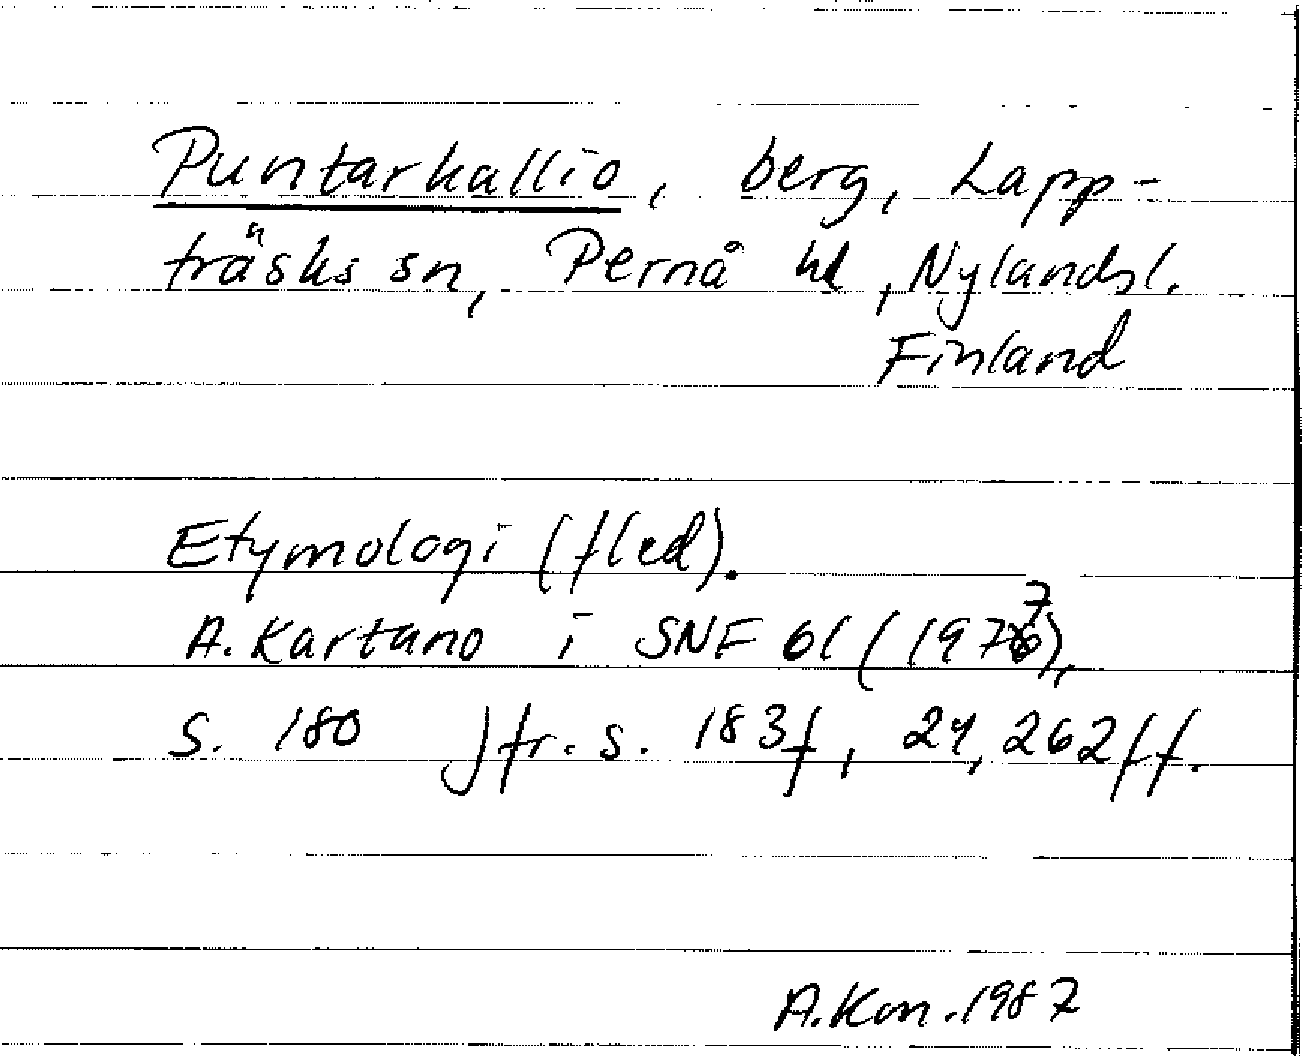 Puntarkallio, berg, Lapp-
träsks sn, Pernå hd, Nylandsl.
Finland
Etymologi (fled).
A. Kartano i SNF 61 (1977),
s. 180 Jfr. s. 183f, 24, 262ff.
A. Kon. 1987